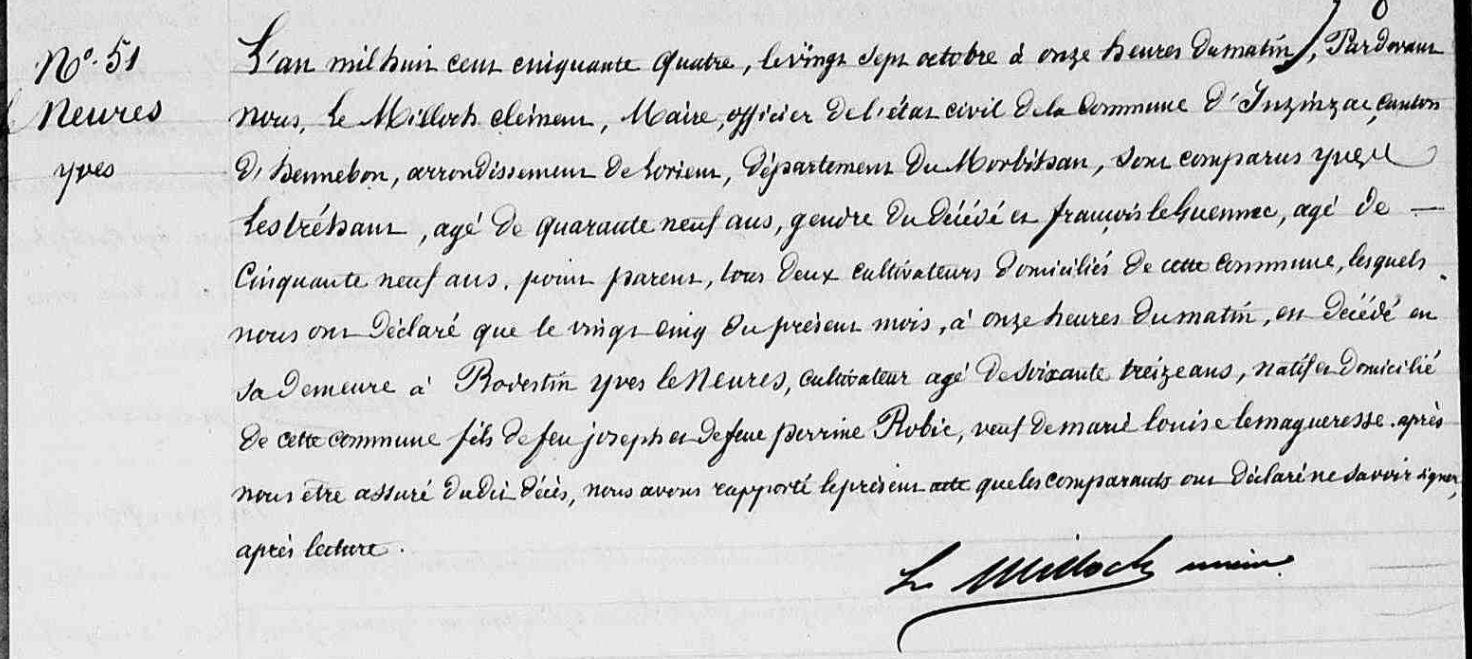 N° 51
le Neures
yves
L'an mil huit cent cinquante quatre, le vingt sept octobre à onze heures du matin, Pardevant
nous, Le Milloch clément, Maire, officier de l'état civil de la Commune d'Inzinzac, canton
d'hennebon, arrondissement de Lorient, département du Morbihan, sont comparus yves
Lestréhant, agé de quarante neuf ans, gendre du décédé et françois le Guennec, agé de —
Cinquante neuf ans, point parent, tous deux cultivateurs domiciliés de cette commune, lesquels
nous ont déclaré que le vingt cinq du présent mois, à onze heures du matin, est décédé en
sa demeure à yves le Neures, cultivateur agé de soixante treize ans, natif et domicilié
de cette commune fils de feu joseph et de feue perrine Robic, veuf de marie louise lemagueresse. après
nous être assuré dudit décès, nous avons rapporté le présent acte que les comparants ont déclaré ne savoir signer,
après lecture.
Le Milloch maire